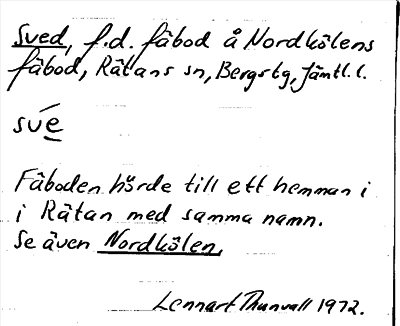 Sved, f.d. fäbod å Nordkölens
fäbod, Rätans sn, Bergs tg, Jämtl. l.
své
Fäboden hörde till ett hemman i
i Rätan med samma namn.
Se även Nordkölen.
Lennart Thunvall 1972.